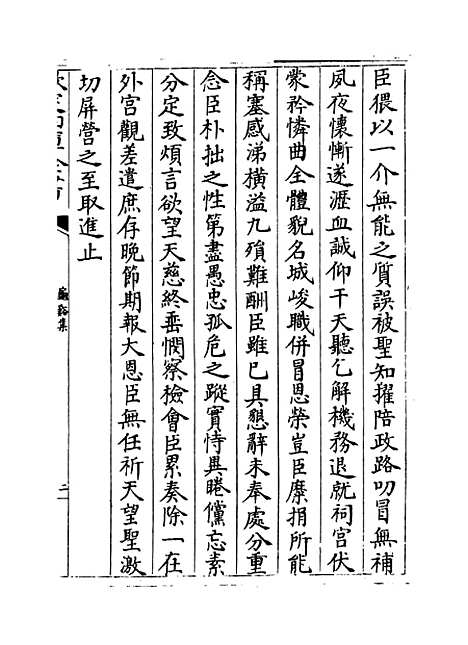 臣猥以一介無能之質誤被聖知擢陪政路叨冒無補
夙夜懷慚遂瀝血誠仰干天聽乞解機務退就祠宮伏
蒙矜憐曲全體貌名城峻職併冒恩榮豈臣糜捐所能
稱塞感涕橫溢九殞難酬臣雖已具懇辭未奉處分重
念臣朴拙之性第盡愚忠孤危之蹤實恃異睠儻忘素
分定致煩言欲望天慈終垂憫察檢會臣累奏除一在
外宮觀差遣庶存晚節期報大恩臣無任祈天望聖激
切屏營之至取進止
欽定四庫全書
集
二